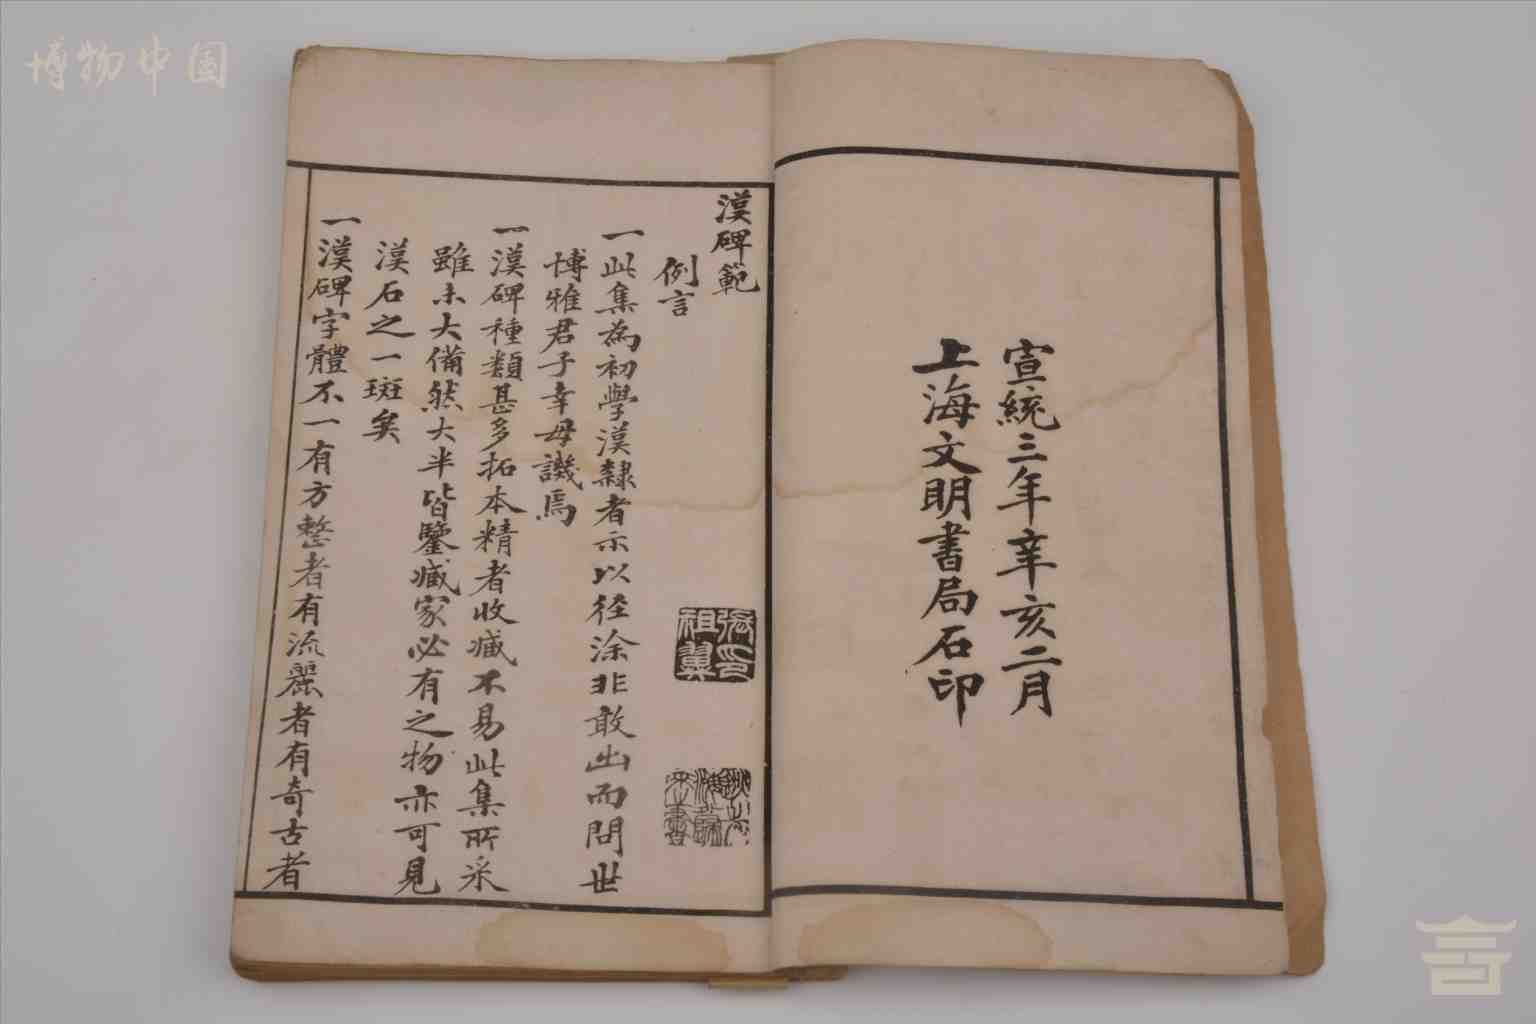 博物中国
宣統三年辛亥二月
上海文明書局石印
漢碑範
例言
一此集為初學漢隸者示以径涂非敢出而問世
博雅君子幸毋譏焉
一漢碑種類甚多拓本精者收藏不易此集所采
雖未大備然大半皆鑒藏家必有之物亦可見
漢石之一斑矣
一漢碑字體不一有方整者有流麗者有奇古者
張印祖翼